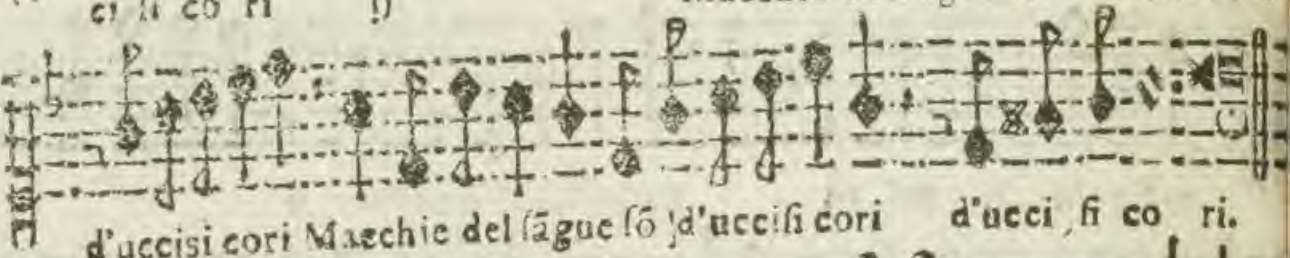 ci ſi co ri
d'uccisi cori Macchie del ſãgue ſõ d'ucciſi cori d'ucci ſi co ri.